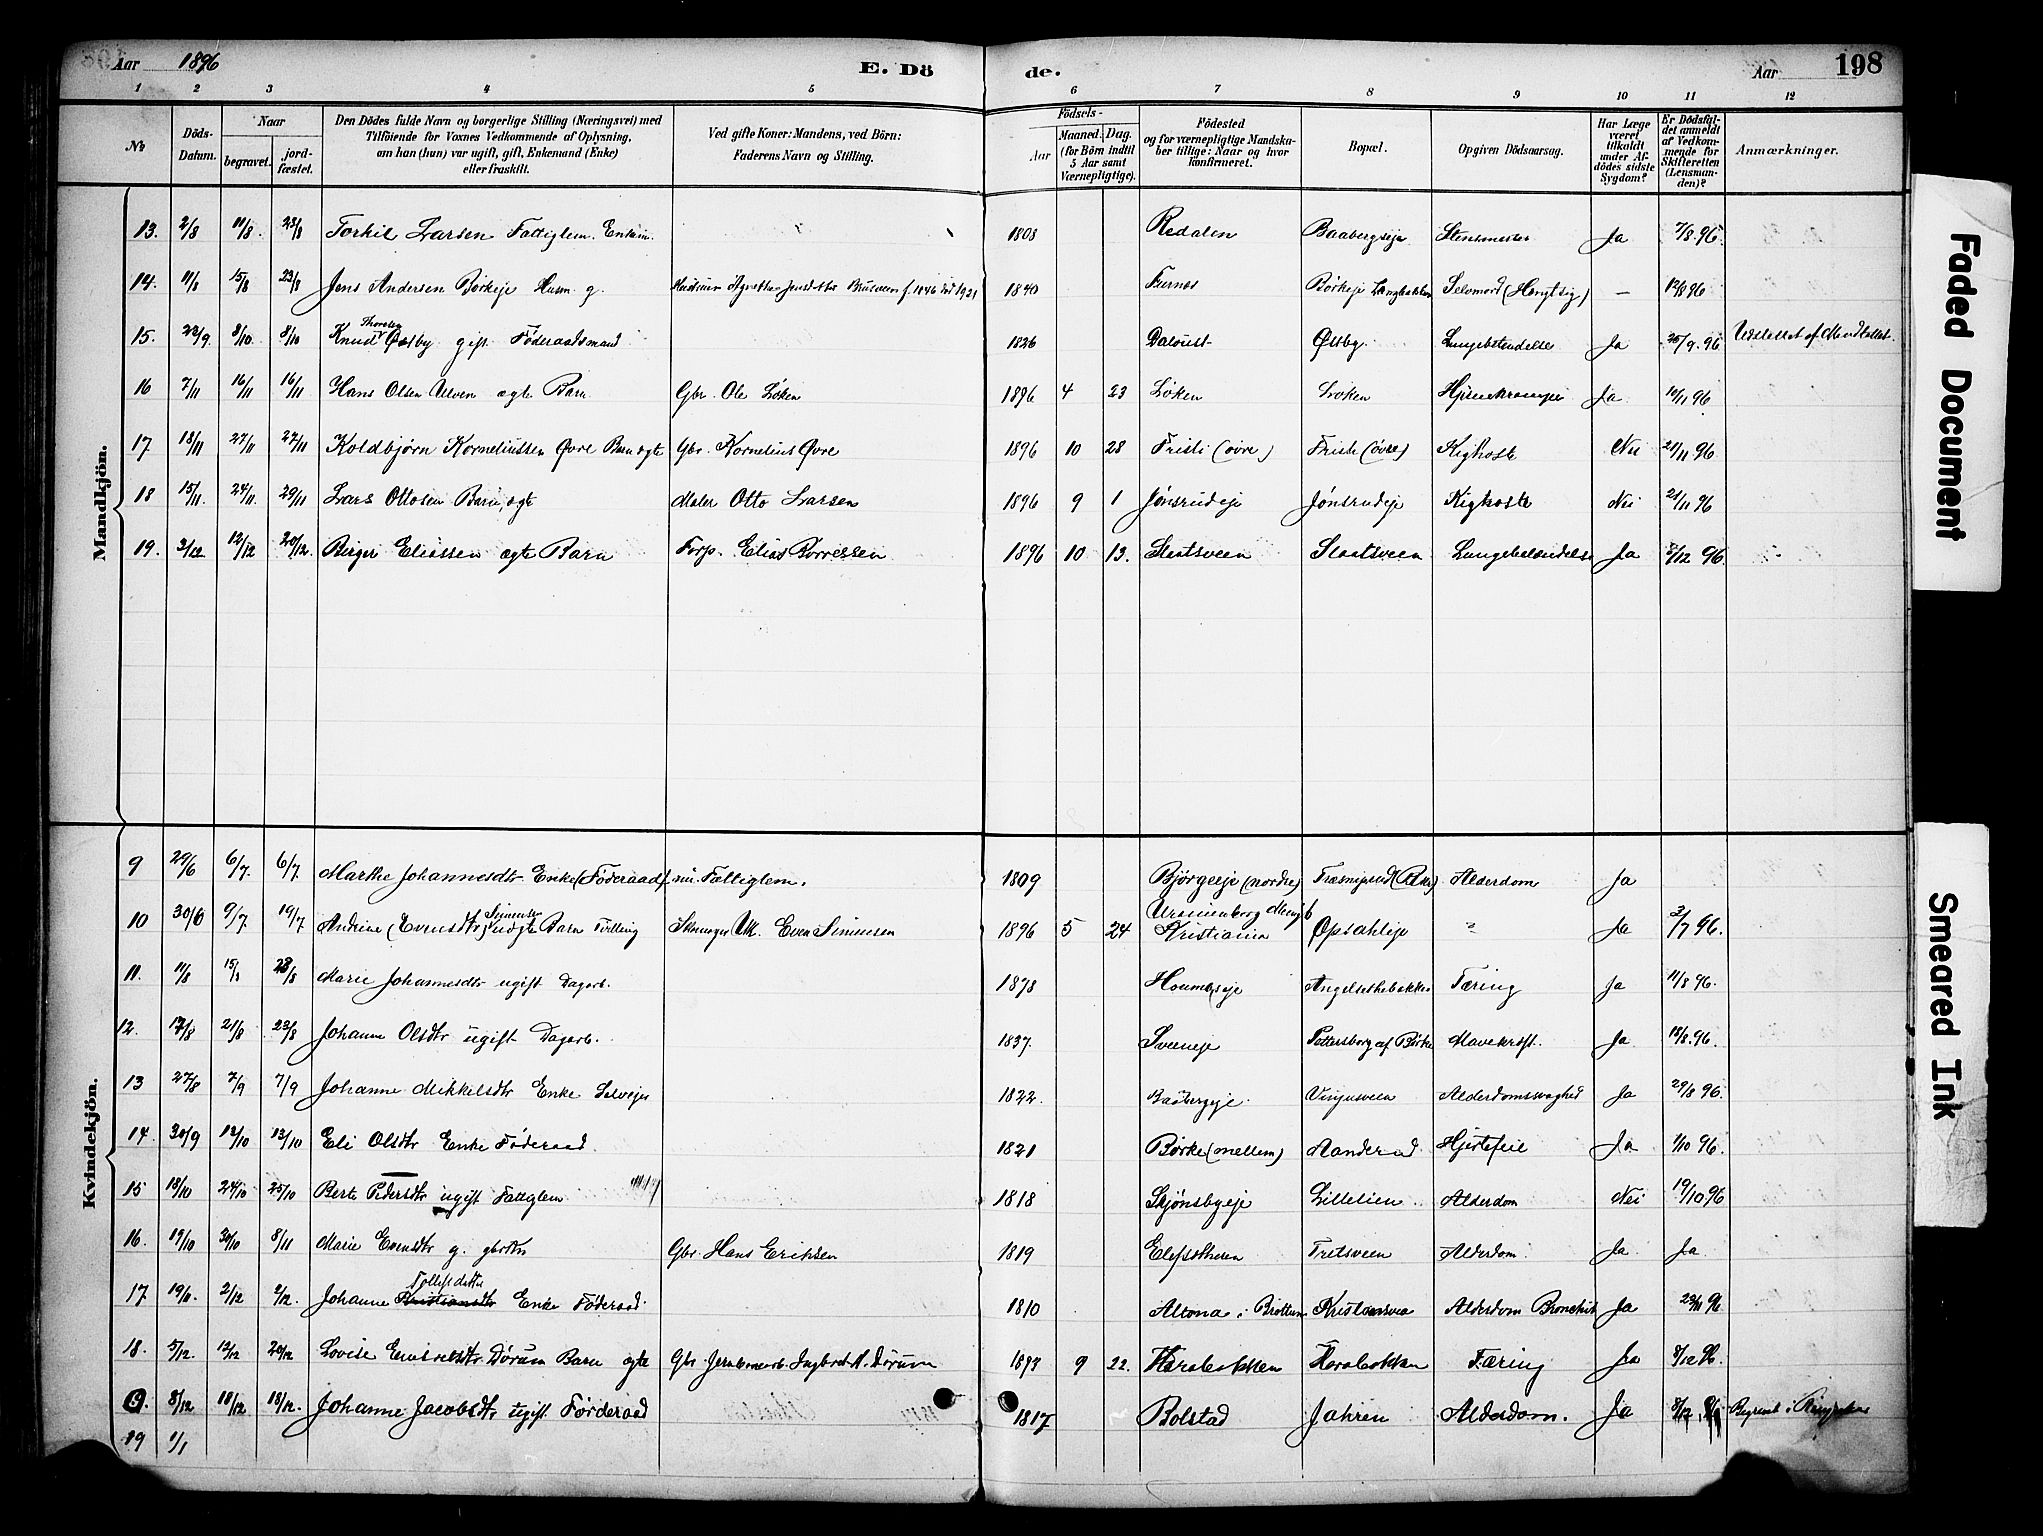 Aar 1896 E. Dö de. Aar 198
1 2 3 4 5 6 7 8 9 10 11 12
No
Döds-Datum.
Naar
begravet. jord-fæstet.
Den Dödes fulde Navn og borgerlige Stilling (Næringsvei) med
Tilföiende for Voxnes Vedkommende af Oplysning,
om han (hun) var ugift, gift, Enkemand (Enke)
eller fraskilt.
Ved gifte Koner: Mandens, ved Börn:
Faderens Navn og Stilling.
Födsels-
Aar
Maaned. Dag.
(for Börn indtil
5 Aar samt
Værnepligtige).
Födested
og for værnepligtige Mandska-
ber tillige: Naar og hvor
konfirmeret.
Bopæl.
Opgiven Dödsaarsag.
Har Læge
været
tilkaldt
under Af-
dödes sidste
Sygdom?
Er Dödsfal-
det anmeldt
af Vedkom-
mende for
Skifteretten
(Lensman-
den)?
Anmærkninger.
Mandkjön.
13. 2/8 11/8. 23/8 Torkil Larsen Fattiglem. Enkem. 1808 Redalen Baabergseje Ja 7/8.96.
14. 11/8 15/8 23/8 Jens Andersen Börkeje Husm g. 1840 Furnes Börkeje Selvmord (Hengt sig) — 12/8 96
Thorsten
15. 22/9. 8/10. 8/10 Knud Østby gift Föderaadsmand 1826 Østby. Lungebetændelse Ja 25/9.96
16 7/11 16/11 16/11 Hans Olsen Ulven ægte Barn Gbr. Ole Löken 1896 4 23 Löken Löken Ja 10/11 96
17. 18/11 27/11 27/11 Koldbjørn Korneliussen Øvre Barn ægte Gbr. Kornelius Øvre 1896 10 28 Fristi (övre) Fristi (övre) Kighoste Nei 21/11 96
18 15/11 24/11. 29/11 Lars Ottosen Barn, ægte Maler Otto Larsen 1896 9 1 Jönsrudeje Jönsrudeje Kighoste Nei 21/11 96
19. 3/12 12/12 20/12. Birger Eliassen ægte Barn Forp. Elias Borressen 1896 10 13. Staatsveen Staatsveen Lungebetændelse Ja 5/12 96.
Kvindekjön.
9 29/6 6/7. 6/7. Marthe Johannesdtr Enke (Föderaad) nu Fattiglem. 1809 Bjørgeeje (nordre) Alderdom Ja
10 30/6 9/7. 19/7 Andrine (Evensdtr) Simensen uægte Barn Tvilling Even Simensen 1896 5 24 Uranienborg Menigh Kristiania Opsahleje " Ja 2/7 96.
11. 11/8 15/8 23/8 Marie Johannesdtr ugift Dagarb. 1878 Tæring Ja 11/8 96.
12. 17/8 21/8 23/8 Johanne Olsdtr ugift Dagarb. 1837. Sveeneje Pettersborg af Börke Mavekræft. Ja 18/8.96.
13 27/8 7/9 7/9 Johanne Mikkelsdtr Enke Selvejer 1822. Baabergeje. Alderdomssvaghed Ja 29/8 96.
14. 30/9 12/10 12/10 Eli Olsdtr Enke Föderaad. 1821 Börke (mellem) Aanderud Hjertefeil Ja 1/10 96.
15 18/10 24/10 25/10 Berte Pedersdtr ugift Fattiglem 1818 Skjönsbyeje Lillelien. Alderdom Nei 19/10 96
16. 19/10 30/10 8/11 Marie Evensdtr g. Gbr. Hans Eriksen 1819 Tretsveen Alderdom Ja Ja
17. 19/11. 2/12 2/12. Johanne Tollefsdatter Kristiansdtr Enke Föderaad 1810 Altona i Brottum Kristiansvea Alderdom Bronchit Ja 23/11 96
18. 5/12. 12/12 20/12 Lovise Dørum Barn ægte Gbr. Jernbanearb. Ingbret A. Dørum 1893 9 22. Harabakken Harabakken Tæring Ja 8/12 96.
9. 8/12 18/12 18/12. Johanne Jacobsdtr ugift Förderaad 1817 Bolstad Jahren Alderdom. Ja 8/12
19 1/1
Faded Document
Smeared Ink